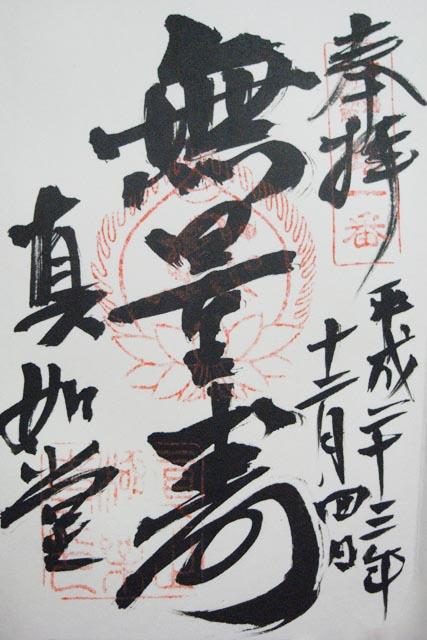 奉拝
平成二十三年
十二月四日
無量寿
真如堂
一番